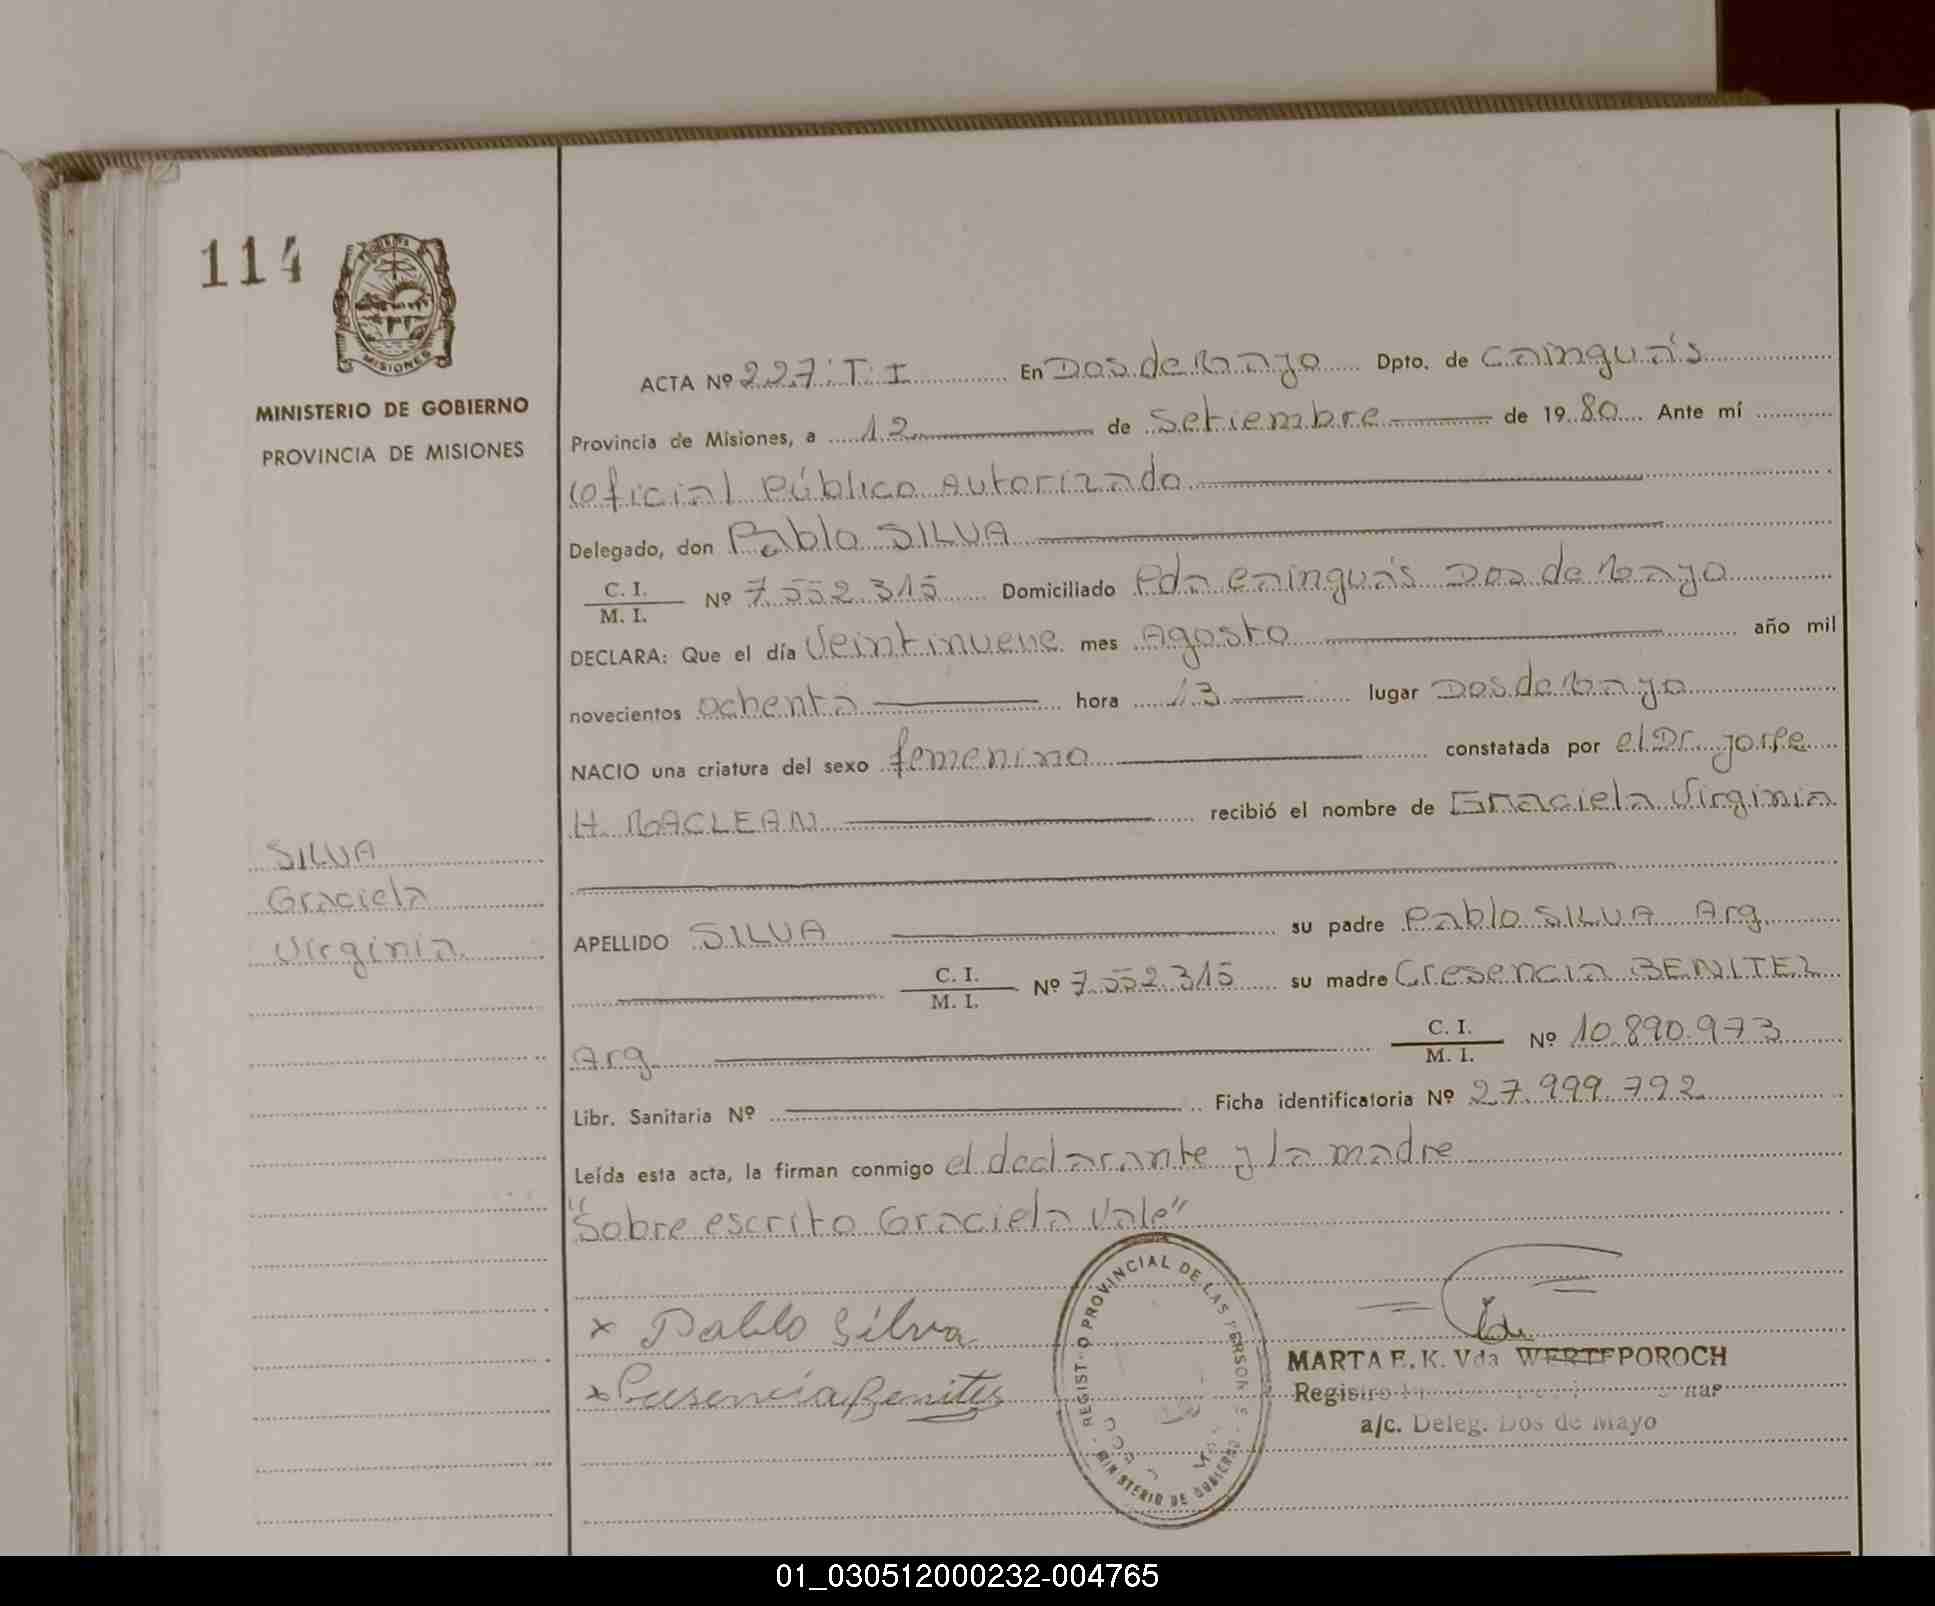 114
MISIONES
MINISTERIO DE GOBIERNO
PROVINCIA DE MISIONES
SILVA
Graciela
Virginia
ACTA Nº 227 T I En Dos de Mayo Dpto. de Cainguás
Provincia de Misiones, a 12 de Setiembre de 1980 Ante mí
Oficial Público Autorizado
Delegado, don Pablo SILVA
C. I.
M. I. Nº 7.552.315 Domiciliado Pda Cainguás Dos de Mayo
DECLARA: Que el día Veintinueve mes Agosto año mil
novecientos ochenta hora 13 lugar Dos de Mayo
NACIO una criatura del sexo femenino constatada por el Dr. Jorge
H. MACLEAN recibió el nombre de Graciela Virginia
APELLIDO SILVA su padre Pablo SILVA Arg
C. I.
M. I. Nº 7.552.315 su madre Cresencia BENITEZ
Arg C. I.
M. I. Nº 10.890.973
Libr. Sanitaria Nº Ficha identificatoria Nº 27.999.792
Leída esta acta, la firman conmigo el declarante y la madre
"Sobre escrito Graciela Vale"
x Pablo Silva
x Cresencia Benites
REGISTRO PROVINCIAL DE LAS PERSONAS
MINISTERIO DE GOBIERNO
MARTA E. K. Vda WERTEPOROCH
a/c. Deleg. Dos de Mayo
01_030512000232-004765